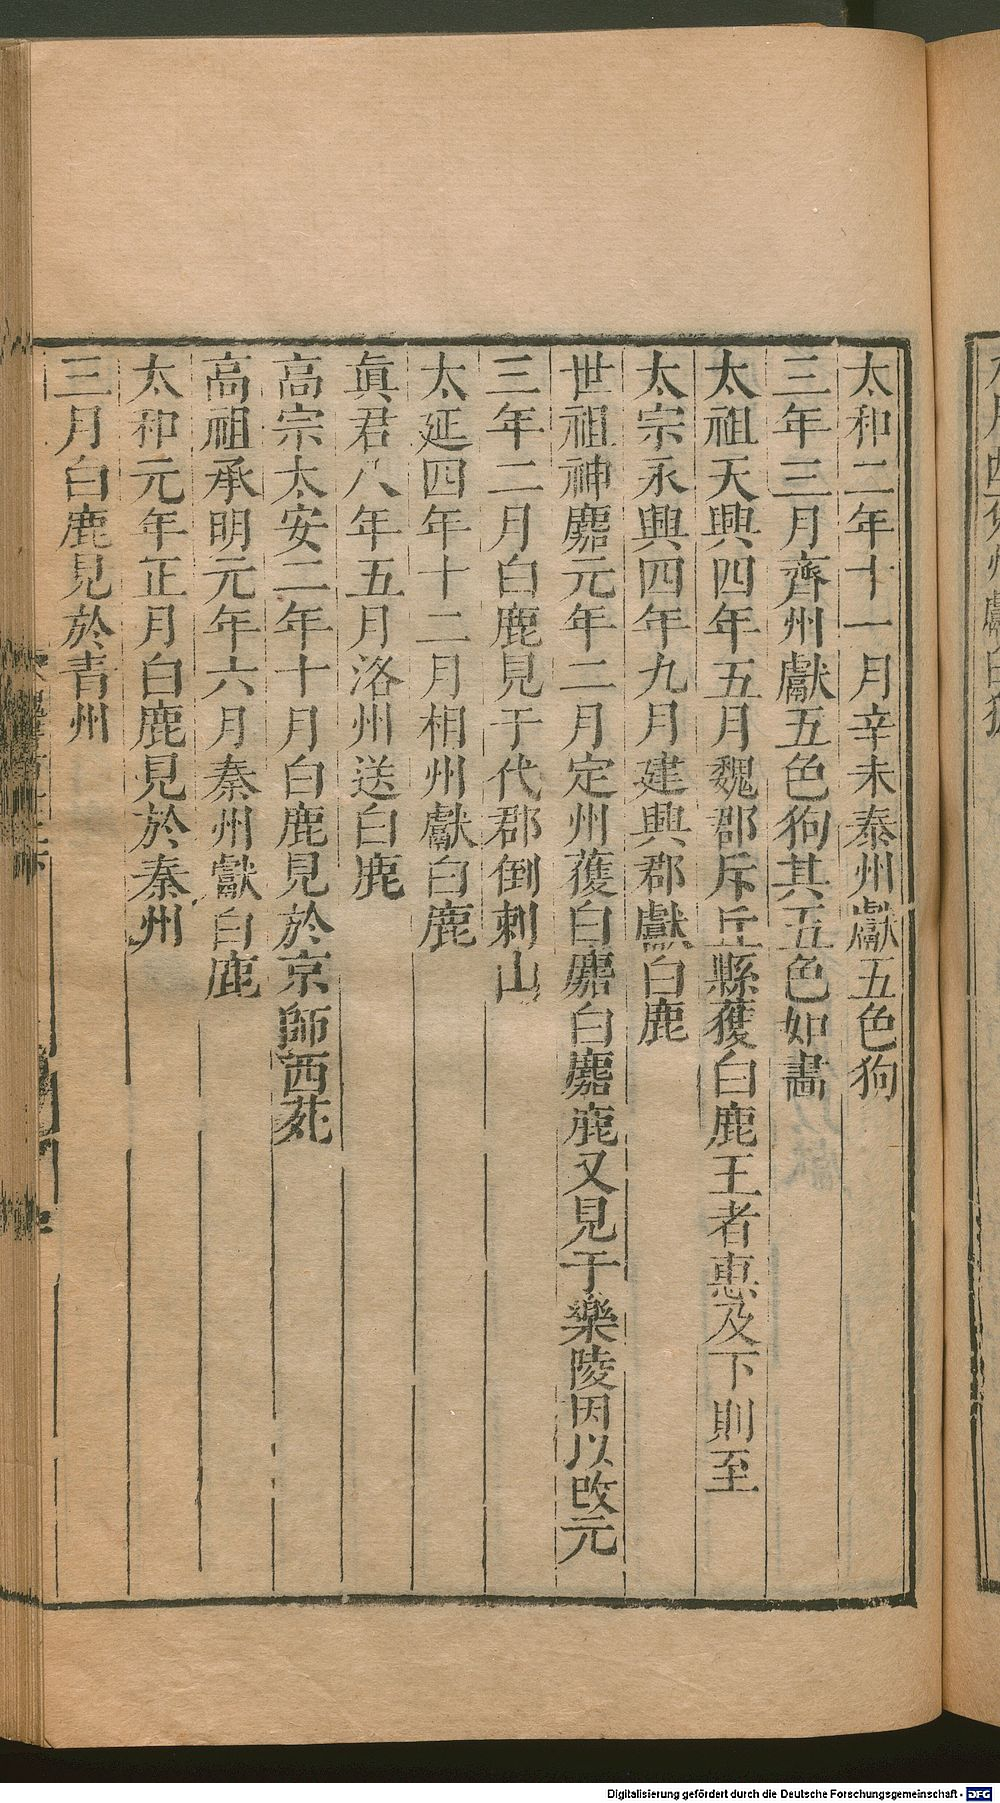 太和二年十一月辛未泰州獻五色狗
三年三月齊州獻五色狗其五色如畵
太祖天興四年五月魏郡斥丘縣獲白鹿王者惠及下則至
太宗永興四年九月建興郡獻白鹿
世祖神䴥元年二月定州獲白䴥白䴥鹿又見于樂陵因以改元
三年二月白鹿見于代郡倒刺山
太延四年十二月相州獻白鹿
眞君八年五月洛州送白鹿
高宗太安二年十月白鹿見於京師西苑
高祖承明元年六月秦州獻白鹿
太和元年正月白鹿見於秦州
三月白鹿見於青州
Digitalisierung gefördert durch die Deutsche Forschungsgemeinschaft - DFG